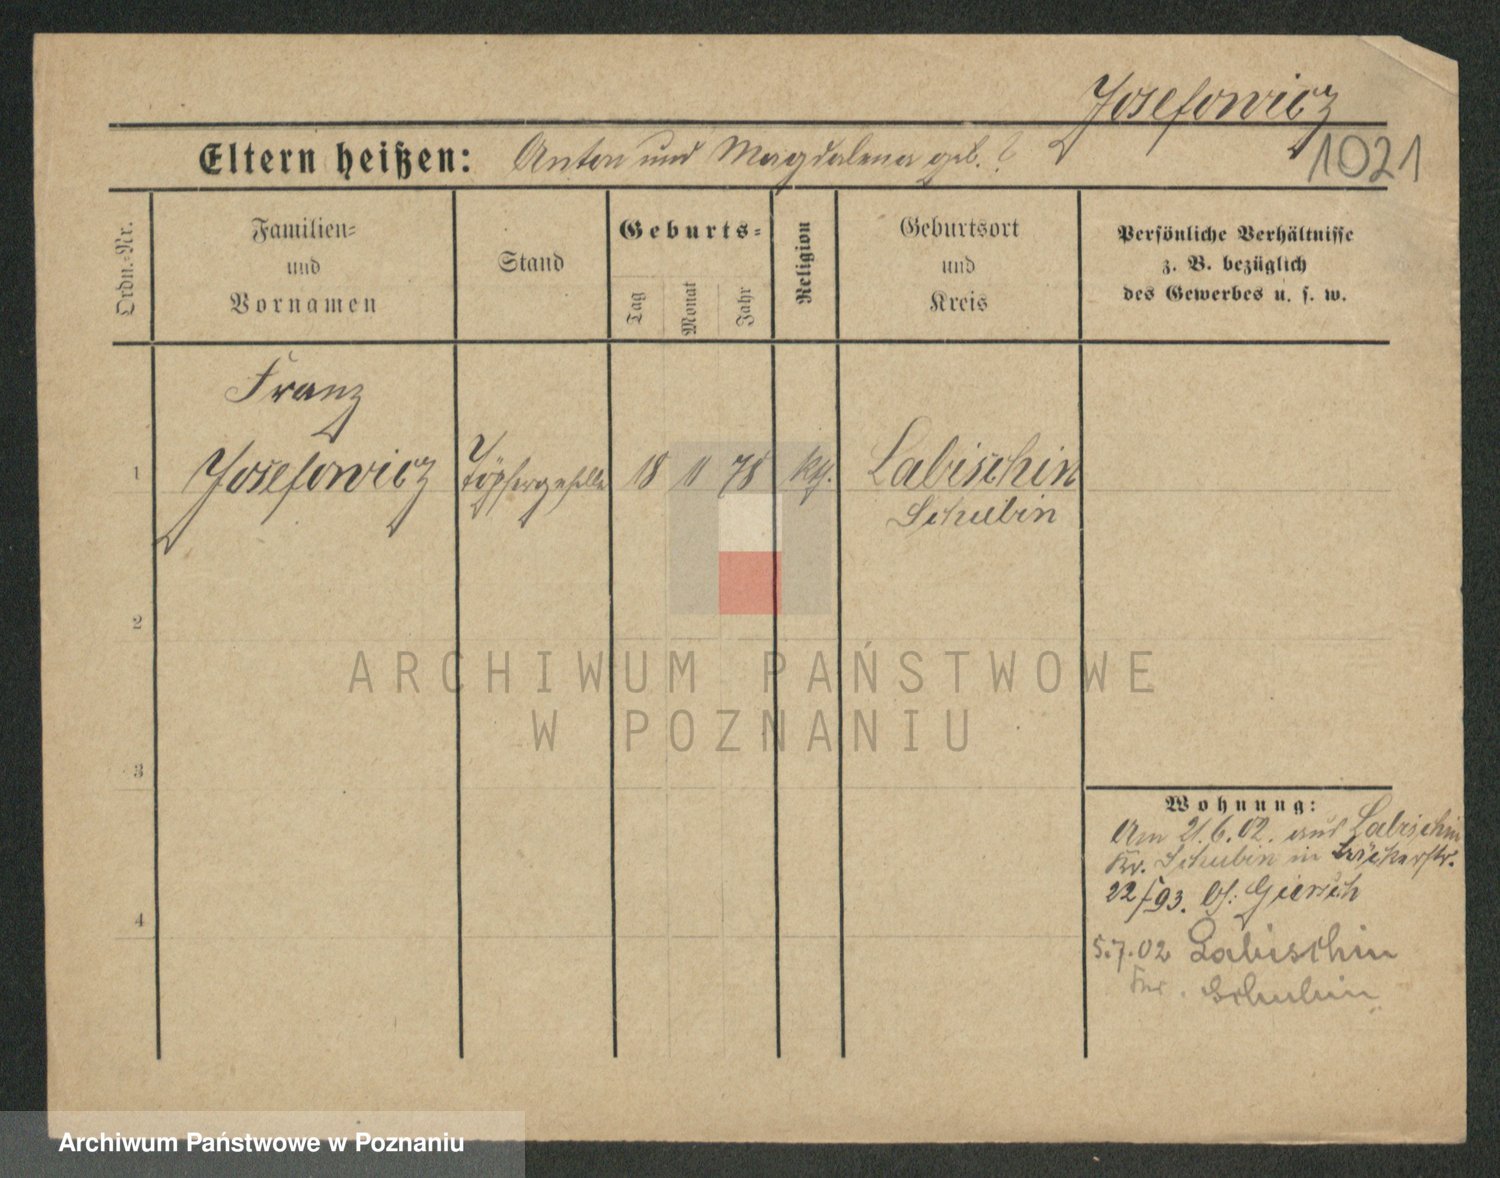 Josefowicz
1021
Eltern heißen: Anton und Magdalena geb. ?
Ordn.-Nr.
Familien-
und
Vornamen
Stand
Geburts-
Tag
Monat
Jahr
Religion
Geburtsort
und
Kreis
Persönliche Verhältnisse
z. B. bezüglich
des Gewerbes u. s. w.
Franz
1 Josefowicz Töpfergeselle 18 11 78 kth. Labischin
Schubin
2
3
4
Wohnung:
Am 21.6.02. aus Labischin
Kr. Schubin in
22/I 93. bei Giersch
5.7.02 Labischin
Kr. Schubin
ARCHIWUM PAŃSTWOWE
W POZNANIU
Archiwum Państwowe w Poznaniu